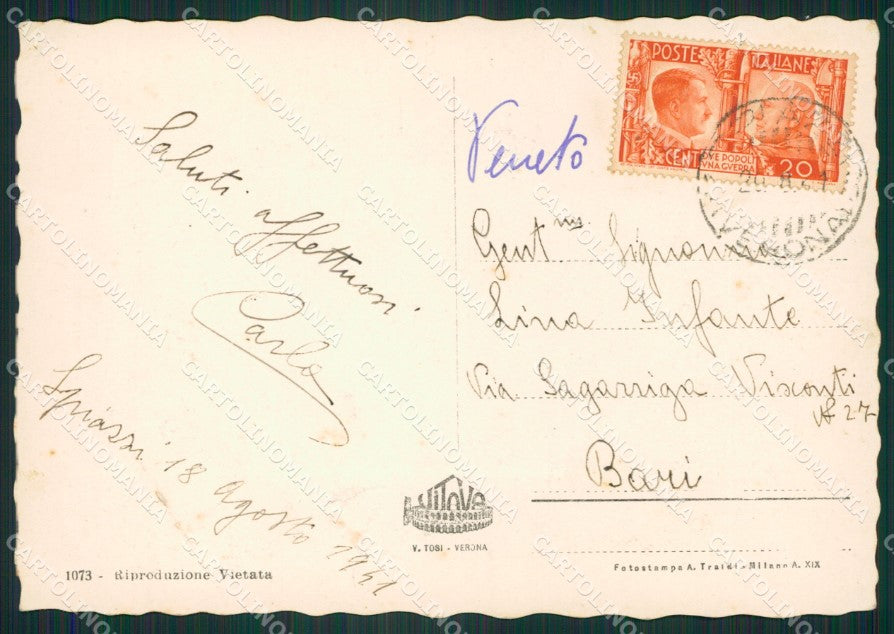 Veneto
POSTE ITALIANE
CENT. 20
DUE POPOLI
UNA GUERRA
VERONA
Saluti affettuosi
Carlo
Spiazzi 18 Agosto 1941
Gent ma Signorina
Lina Infante
Via Sagarriga Visconti
N 27
Bari
VITOVE
V. TOSI - VERONA
1073 - Riproduzione Vietata
Fotostampa A. Traldi - Milano A. XIX
CARTOLINOMANIA